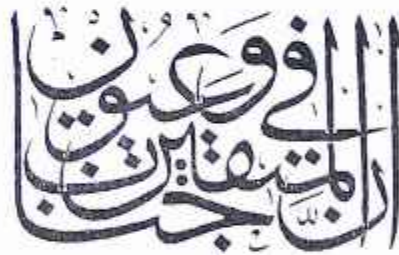 إن المتقين في جنات وعيون